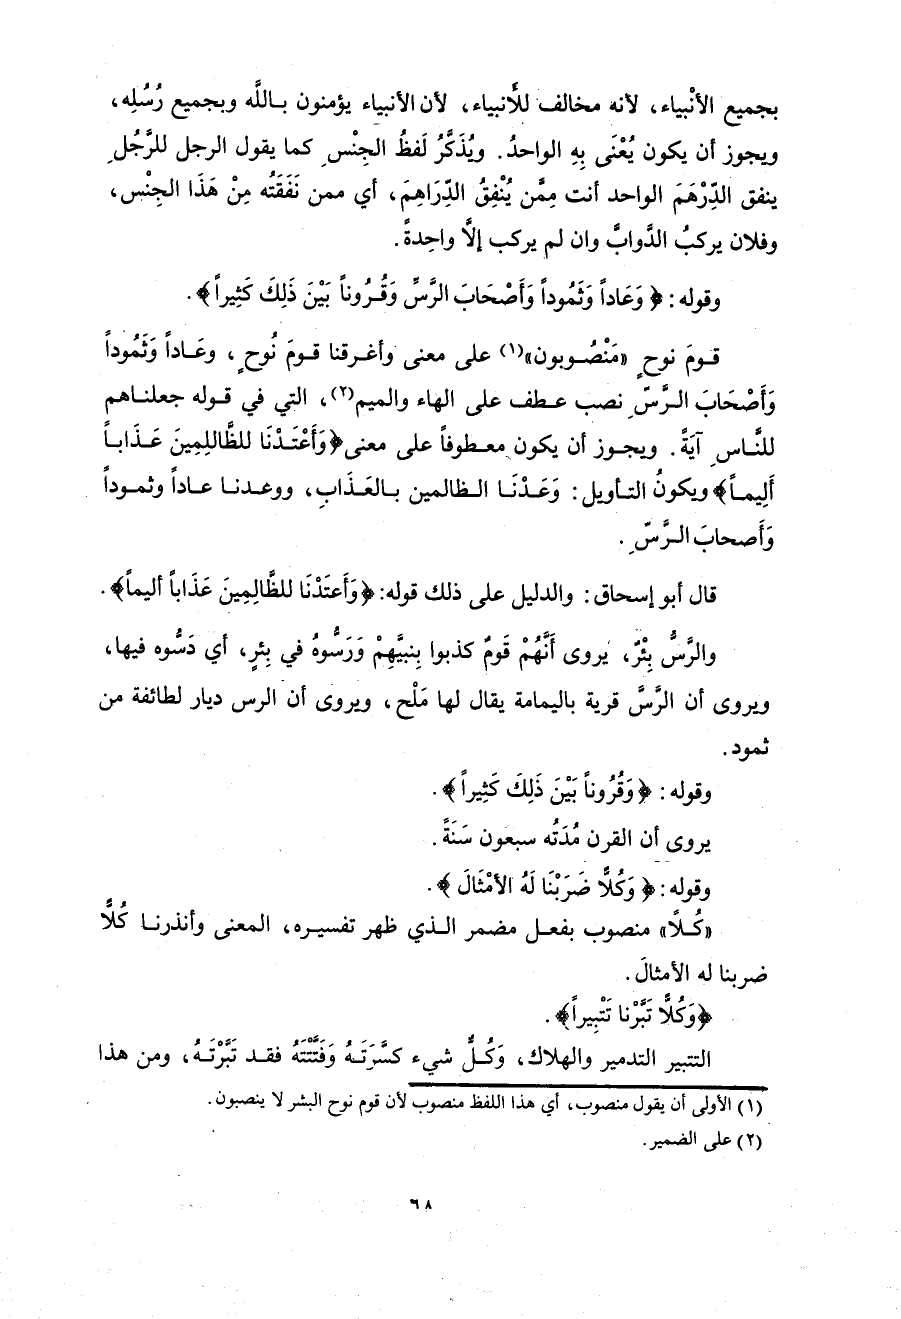 بجميع الأنْبياء، لأنه مخالف للأنبياء، لأن الأنبياء يؤمنون بـاللَّه وبجميع رُسُلِه،
ويجوز أن يكون يُعْنَى بِهِ الواحدُ. ويُذَكَّرُ لَفظُ الجِنْسِ كما يقول الرجل للرَّجُلِ
ينفق الدِّرْهَمَ الواحد أنت مِمَّن يُنْفِقُ الدِّرَاهِمَ، أي ممن نَفَقَتُه مِنْ هَذَا الجِنْس،
وفلان يركبُ الدَّوابَّ وان لم يركب إلَّا واحِدةً.
وقوله: ﴿وَعَاداً وَثَمُوداً وَأَصْحَابَ الرَّسِّ وَقُـرُوناً بَيْنَ ذَلِكَ كَثِيراً﴾.
قـومَ نوحٍ «مَنْصُـوبون»(١) على معنى وأغـرقنا قـومَ نُوحٍ، وعَـاداً وَثَمُوداً
وَأَصْحَابَ الـرَّسِّ نصب عـطف على الهاء والميم(٢)، التي في قـوله جعلنـاهم
للنَّـاسِ آيَةً. ويجـوز أن يكون معـطوفاً على معنى﴿وَأَعْتَـدْنَا للظَّاللِمِينَ عَـذَابـاً
أَلِيمـاً﴾ويكونُ التـأويل: وَعَـدْنَـا الـظالمين بـالعَـذَابِ، ووعـدنـا عـاداً وثمـوداً
وَأَصحابَ الـرَّسِّ.
قال أبو إسحاق: والدليل على ذلك قوله:﴿وَأَعتَدْنَا للظَّالِمِينَ عَذَاباً أليماً﴾.
والرَّسُّ بِئْرٌ، يروى أَنَّهُمْ قَومٌ كذبوا بِنبيَّهِمْ وَرَسُّوهُ في بِئرٍ، أي دَسُّوه فيها،
ويروى أن الرَّسَّ قرية باليمامة يقال لها مَلْح، ويروى أن الرس ديار لطائفة من
ثمود.
وقوله: ﴿وَقُرُوناً بَيْنَ ذَلِكَ كَثيراً﴾.
يروى أن القرن مُدَتُه سبعون سَنَةً.
وقوله:﴿وَكُلًّا ضَرَبْنَا لَهُ الأمْثَالَ﴾.
«كُـلاً» منصوب بفعـل مضمر الـذي ظهر تفسيـره، المعنى وأنذرنـا كُلًّا
ضربنا له الأمثالَ.
﴿وَكُلًّا تَبَّرْنا تَتْبِيراً﴾.
التتبير التدمير والهلاك، وَكُـلُّ شيء كسَّرتَـهُ وَفَتَّتَهُ فقـد تَبَّرْتَـهُ، ومن هذا
(١) الأولى أن يقول منصوب، أي هذا اللفظ منصوب لأن قوم نوح البشر لا ينصبون.
(٢) على الضمير.
٦٨